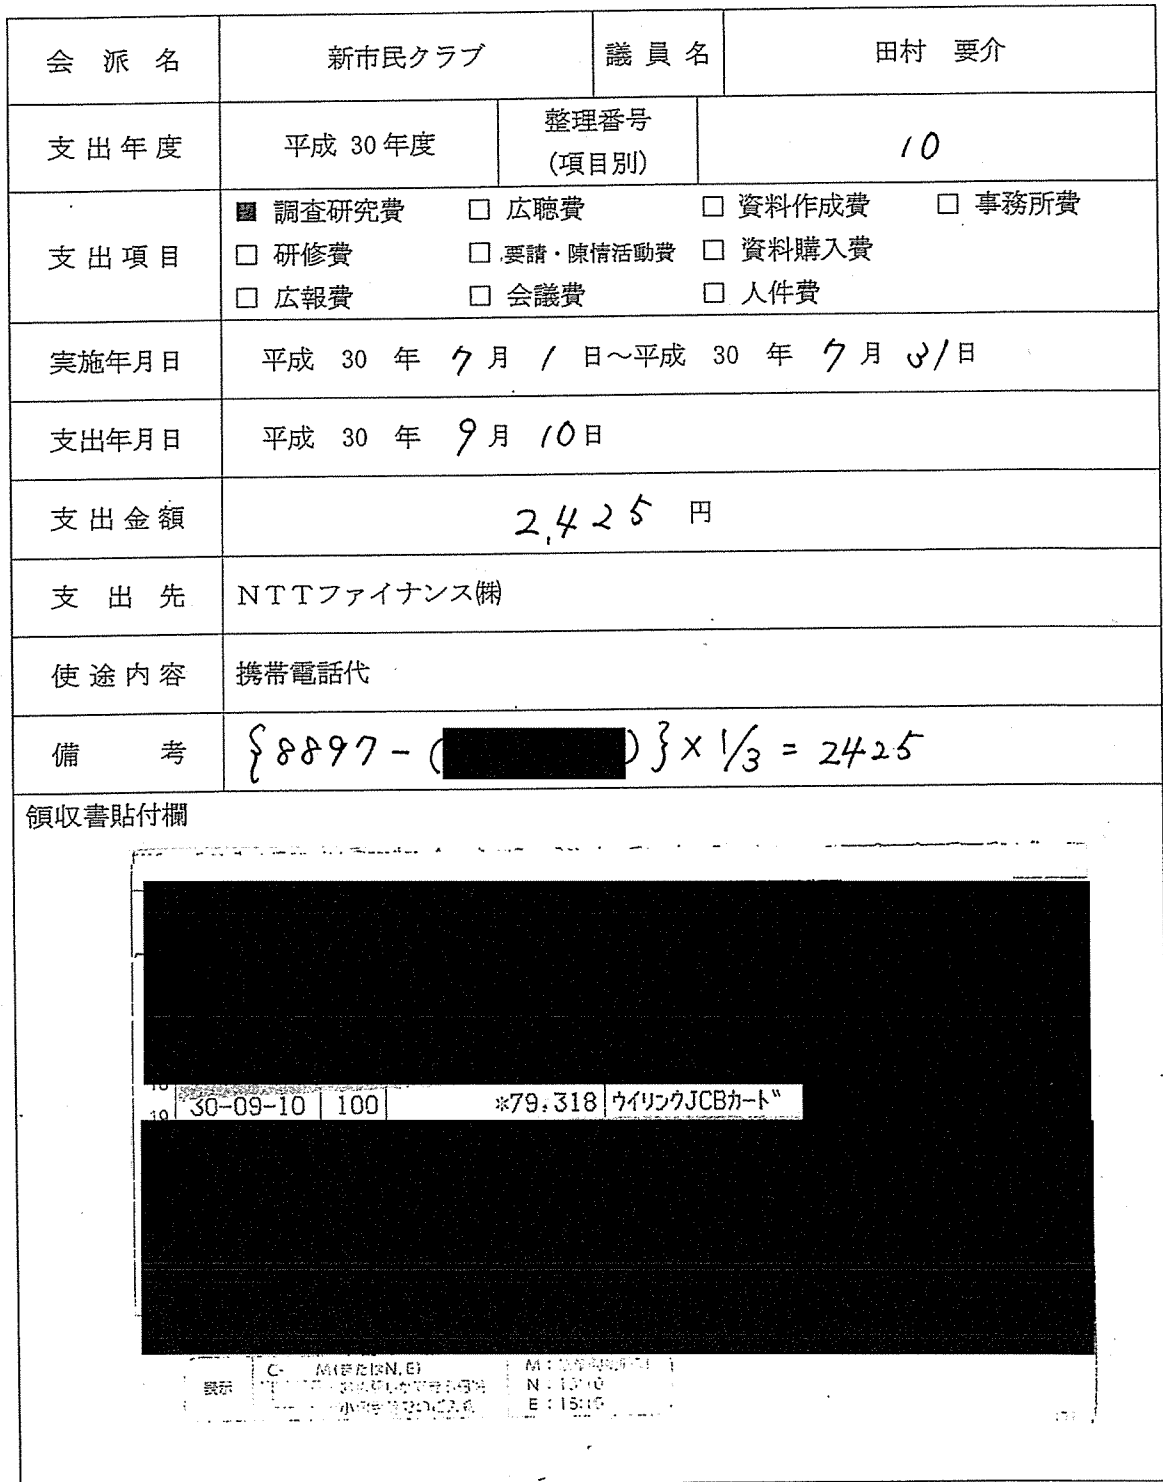 会派名 新市民クラブ 議員名 田村 要介
支出年度 平成 30年度 整理番号 (項目別) 10
支出項目 ■ 調査研究費 □ 広聴費 □ 資料作成費 □ 事務所費
□ 研修費 □ 要請・陳情活動費 □ 資料購入費
□ 広報費 □ 会議費 □ 人件費
実施年月日 平成 30 年 7 月 1 日～平成 30 年 7 月 31 日
支出年月日 平成 30 年 9 月 10 日
支出金額 2,425 円
支出先 NTTファイナンス㈱
使途内容 携帯電話代
備考 {8897-( )}×1/3=2425
領収書貼付欄
19 30-09-10 100 *79,318 ウイリングJCBカード
表示 C- M(またはN,E) M:
N:15:10
E:15:15